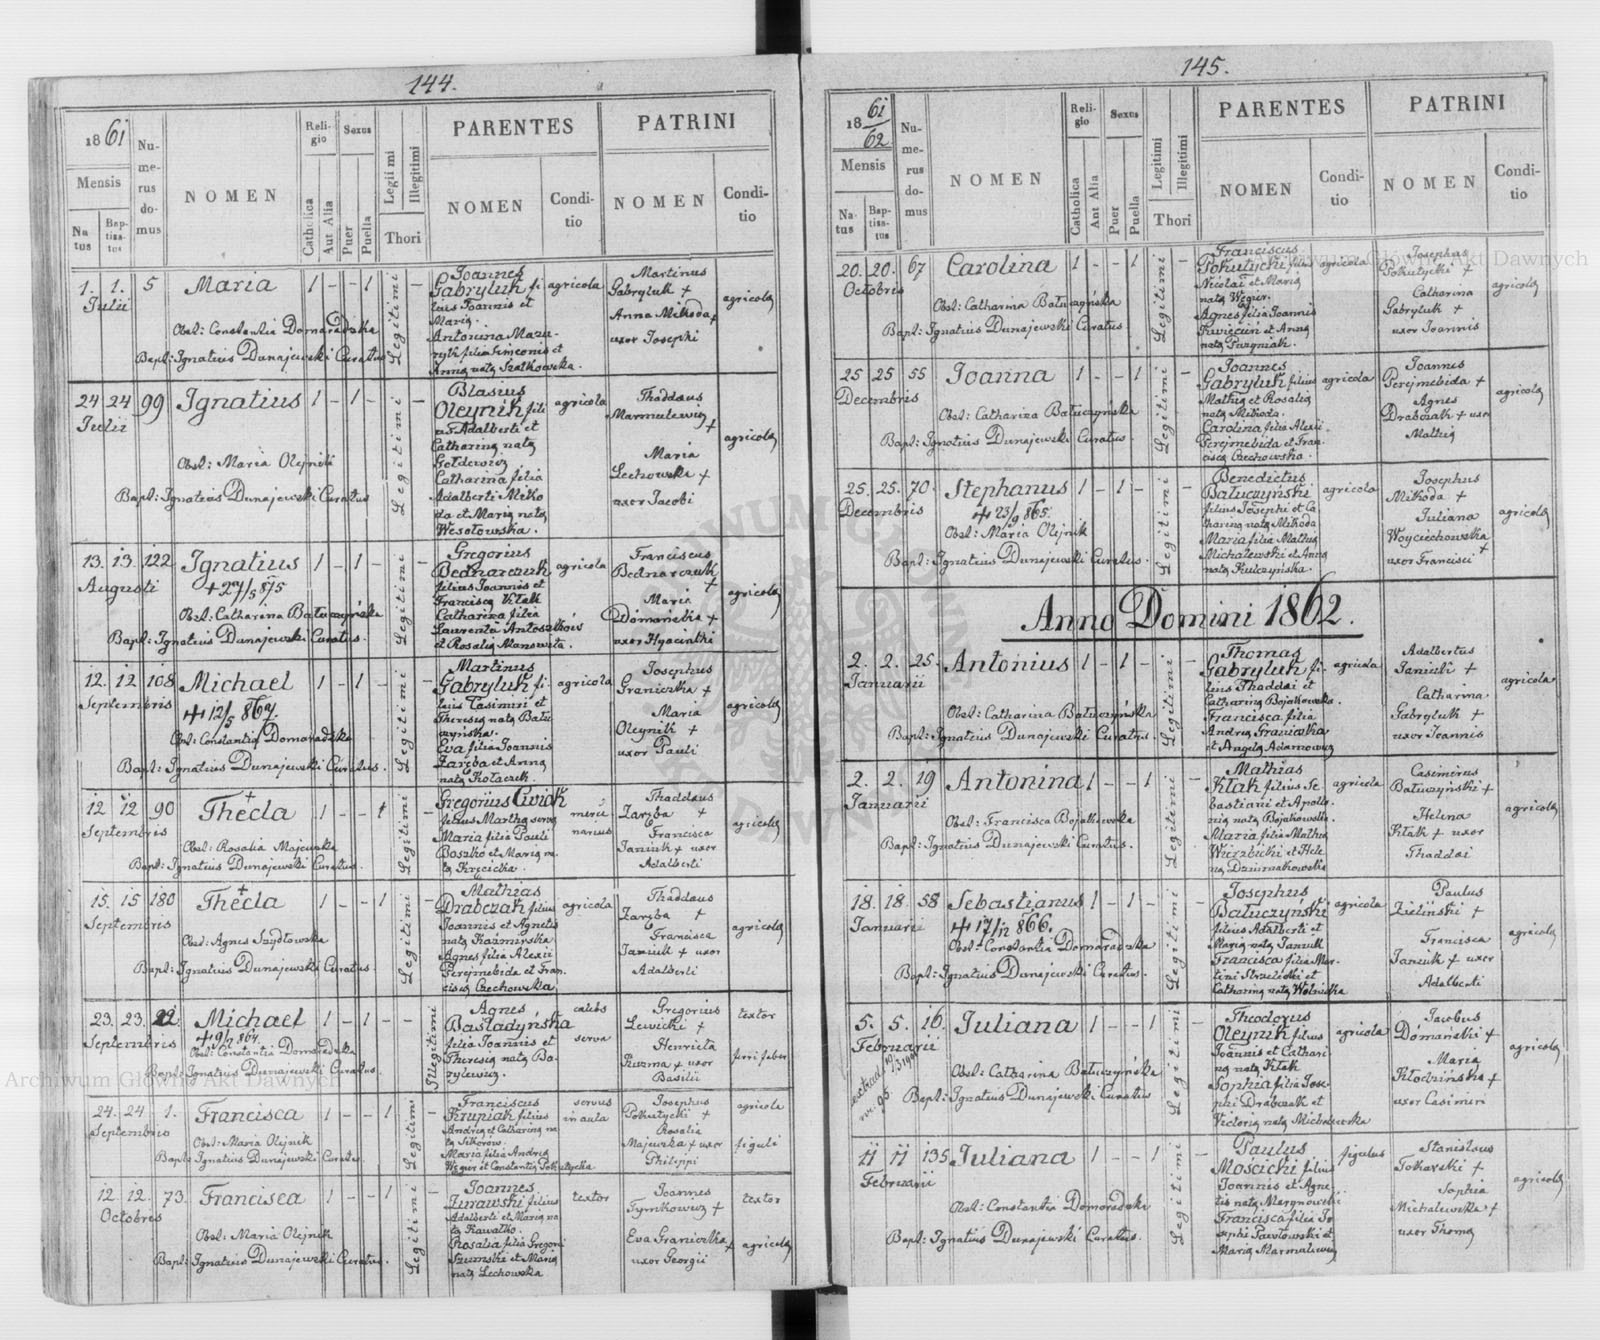 144.
1861
Mensis
Natus
Baptisatus
Numerus domus
NOMEN
Religio
Catholica
Aut Alia
Sexus
Puer
Puella
Legitimi
Illegitimi
Thori
PARENTES
NOMEN
Conditio
PATRINI
NOMEN
Conditio
1. 1. 5 Maria 1 - - 1 Legitimi -
Julii
Obst: Constantia Domaradzka
Bapt: Ignatius Dunajewski Curatus
Joannes
Gabryluk fi
lius Joannis et
Maria
Antonina Mazu-
ryk filia Simeonis et
Anna nata Szatkowska.
agricola
Martinus
Gabryluk +
Anna Mikoda +
uxor Josephi
agricola
24 24 99 Ignatius 1 - 1 - Legitimi -
Julii
Obst: Maria Olejnik
Bapt: Ignatius Dunajewski Curatus
Blasius
Oleynik fili
us Adalberti et
Catharina nata
Catharina filia
Adalberti Miko
da et Maria nata
Wesołowska.
agricola
Thaddaus
Marmulewicz
+
Maria
Lechowska +
uxor Jacobi
agricola
13. 13. 122 Ignatius 1 - 1 - Legitimi -
Augusti
+ 27/5 875
Obst: Catharina Batuczyńska
Bapt: Ignatius Dunajewski Curatus.
Gregorius
Bednarczuk
filius Joannis et
Francisca Kłak
Catharina filia
Laurentii Antoszków
et Rosalia Manowska.
agricola
Franciscus
Bednarczuk
+
Maria
Domańska +
uxor Hyacinthi
agricola
12. 12 108 Michael 1 - 1 - Legitimi -
Septembris
+ 12/5 867.
Obst: Constantia Domaradzka
Bapt: Ignatius Dunajewski Curatus.
Martinus
Gabryluk fi-
lius Casimiri et
Theresia nata Batu
czyńska.
Eva filia Joannis
Zaręba et Anna
nata Kołaczek.
agricola
Josephus
Graniczka +
Maria
Oleynik +
uxor Pauli
agricola
12 12 90 Thecla 1 - - 1 Legitimi
+
Septembris
Obst: Rosalia Majewska
Bapt: Ignatius Dunajewski Curatus.
Gregorius Cwiok
filius Martha serva
Maria filia Pauli
Boszko et Maria na
ta Kręcicka.
merce
narius
Thaddaus
Zaręba +
Francisca
Janiuk + uxor
Adalberti
agricola
15. 15 180 Thecla 1 - - 1 Legitimi -
+
Septembris
Obst: Agnes Szydłowska
Bapt: Ignatius Dunajewski Curatus.
Mathias
Drabczak filius
Joannis et Agnetis
nata Kazmirska
Agnes filia Alexii
Perejmebida et Fran
cisca Czechowska
agricola
Thaddaus
Zaręba +
Francisca
Janiuk + uxor
Adalberti
agricola
23. 23. 22 Michael 1 - 1 - - Illegitimi
Septembris
Obst: Constantia Domaradzka
Bapt: Ignatius Dunajewski Curatus.
Agnes
Bastadyńska
filia Joannis et
Theresia nata Ba-
zylewicz.
calebs
serva
Gregorius
Lewicki +
Henrica
Kuzma + uxor
Basilii
textor
ferri faber
24. 24 1. Francisca 1 - - 1 Legitimi -
Septembris
Obst: Maria Olejnik
Bapt: Ignatius Dunajewski Curatus.
Franciscus
Krupiak filius
Andrea et Catharina na
ta Sikorów.
Maria filia Andrea
Węgier et Constantia Pokutycka
servus
in aula
Josephus
Pokutycki +
Rosalia
Majewska + uxor
Philippi
agricola
figuli
12. 12. 73. Francisca 1 - - 1 Legitimi -
Octobris
Obst: Maria Olejnik
Bapt: Ignatius Dunajewski Curatus.
Joannes
Żurawski filius
Adalberti et Maria na
ta Kawałko
Rosalia filia Gregorii
Szumski et Maria
nata Lechowska
textor
Joannes
Tymkowicz +
Eva Graniczka +
uxor Georgii
textor
agricola
145.
18 61/62
Mensis
Natus
Baptisatus
Numerus domus
NOMEN
Religio
Catholica
Aut Alia
Sexus
Puer
Puella
Legitimi
Illegitimi
Thori
PARENTES
NOMEN
Conditio
PATRINI
NOMEN
Conditio
20. 20. 67 Carolina 1 - - 1 Legitimi -
Octobris
Obst: Catharina Batuczyńska
Bapt: Ignatius Dunajewski Curatus
Franciscus
Pokutycki filius
Nicolai et Maria
nata Węgier.
Agnes filia Joannis
Kwiecień et Anna
nata Puzyniak.
agricola
Josephus
Pokutycki +
Catharina
Gabryluk +
uxor Joannis
agricola
25 25 55 Joanna 1 - - 1 Legitimi -
Decembris
Obst: Catharina Batuczyńska
Bapt: Ignatius Dunajewski Curatus.
Joannes
Gabryluk filius
Mathia et Rosalia
nata Mikoda.
Carolina filia Alexii
Perejmebida et Fran-
cisca Czechowska.
agricola
Joannes
Perejmebida +
Agnes
Drabczak + uxor
Mathia
agricola
25. 25. 70. Stephanus 1 - 1 - Legitimi -
Decembris
+ 23/9 865.
Obst: Maria Olejnik
Bapt: Ignatius Dunajewski Curatus.
Benedictus
Batuczyński
filius Josephi et Ca
tharina nata Mikoda
Maria filia Mathia
Michalewski et Anna
nata Kulczyńska.
agricola
Josephus
Mikoda +
Juliana
Woyciechowska
+
uxor Francisci
agricola
Anno Domini 1862.
2. 2. 25 Antonius 1 - 1 - Legitimi -
Januarii
Obst: Catharina Batuczyńska
Bapt: Ignatius Dunajewski Curatus.
Thomas
Gabryluk fi-
lius Thaddai et
Catharina Bojakowska.
Francisca filia
Andrea Graniczka
et Angela Adamowicz
agricola
Adalbertus
Janiuk +
Catharina
Gabryluk +
uxor Joannis
agricola
2. 2. 19 Antonina 1 - - 1 Legitimi -
Januarii
Obst: Francisca Bojakowska
Bapt: Ignatius Dunajewski Curatus.
Mathias
Kłak filius Se
bastiani et Apollo-
nia nata Bojakowska
Maria filia Mathia
Wierzbicki et Hele
na Dziurnakowska
agricola
Casimirus
Batuczyński +
Helena
Kłak + uxor
Thaddai
agricola
18. 18. 58 Sebastianus 1 - 1 - Legitimi -
Januarii
+ 17/12 866.
Obst: Constantia Domaradzka
Bapt: Ignatius Dunajewski Curatus.
Josephus
Batuczyński
filius Adalberti et
Maria nata Janiuk
Francisca filia Mar-
tini Strzelecki et
Catharina nata Woźnicka
agricola
Paulus
Zieliński +
Francisca
Janiuk + uxor
Adalberti
agricola
5. 5. 16. Juliana 1 - - 1 Legitimi -
Februarii
Obst: Catharina Batuczyńska
Bapt: Ignatius Dunajewski Curatus
Theodorus
Oleynik filius
Joannis et Cathari-
na nata Kłak
Sophia filia Jose-
phi Drabczak et
Victoria nata Michalewska
agricola
Jacobus
Domański +
Maria
Kłodzińska +
uxor Casimiri
agricola
11 11 135 Juliana 1 - - 1 Legitimi -
Februarii
Obst: Constantia Domaradzka
Bapt: Ignatius Dunajewski Curatus.
Paulus
Mościcki filius
Joannis et Agne-
tis nata Marynowski
Francisca filia Jo
sephi Pawłowski et
Maria Marmulewicz
figulus
Stanislaus
Tokarski +
Sophia
Michalewska +
uxor Thoma
agricola
Archiwum Główne Akt Dawnych
Archiwum Główne Akt Dawnych